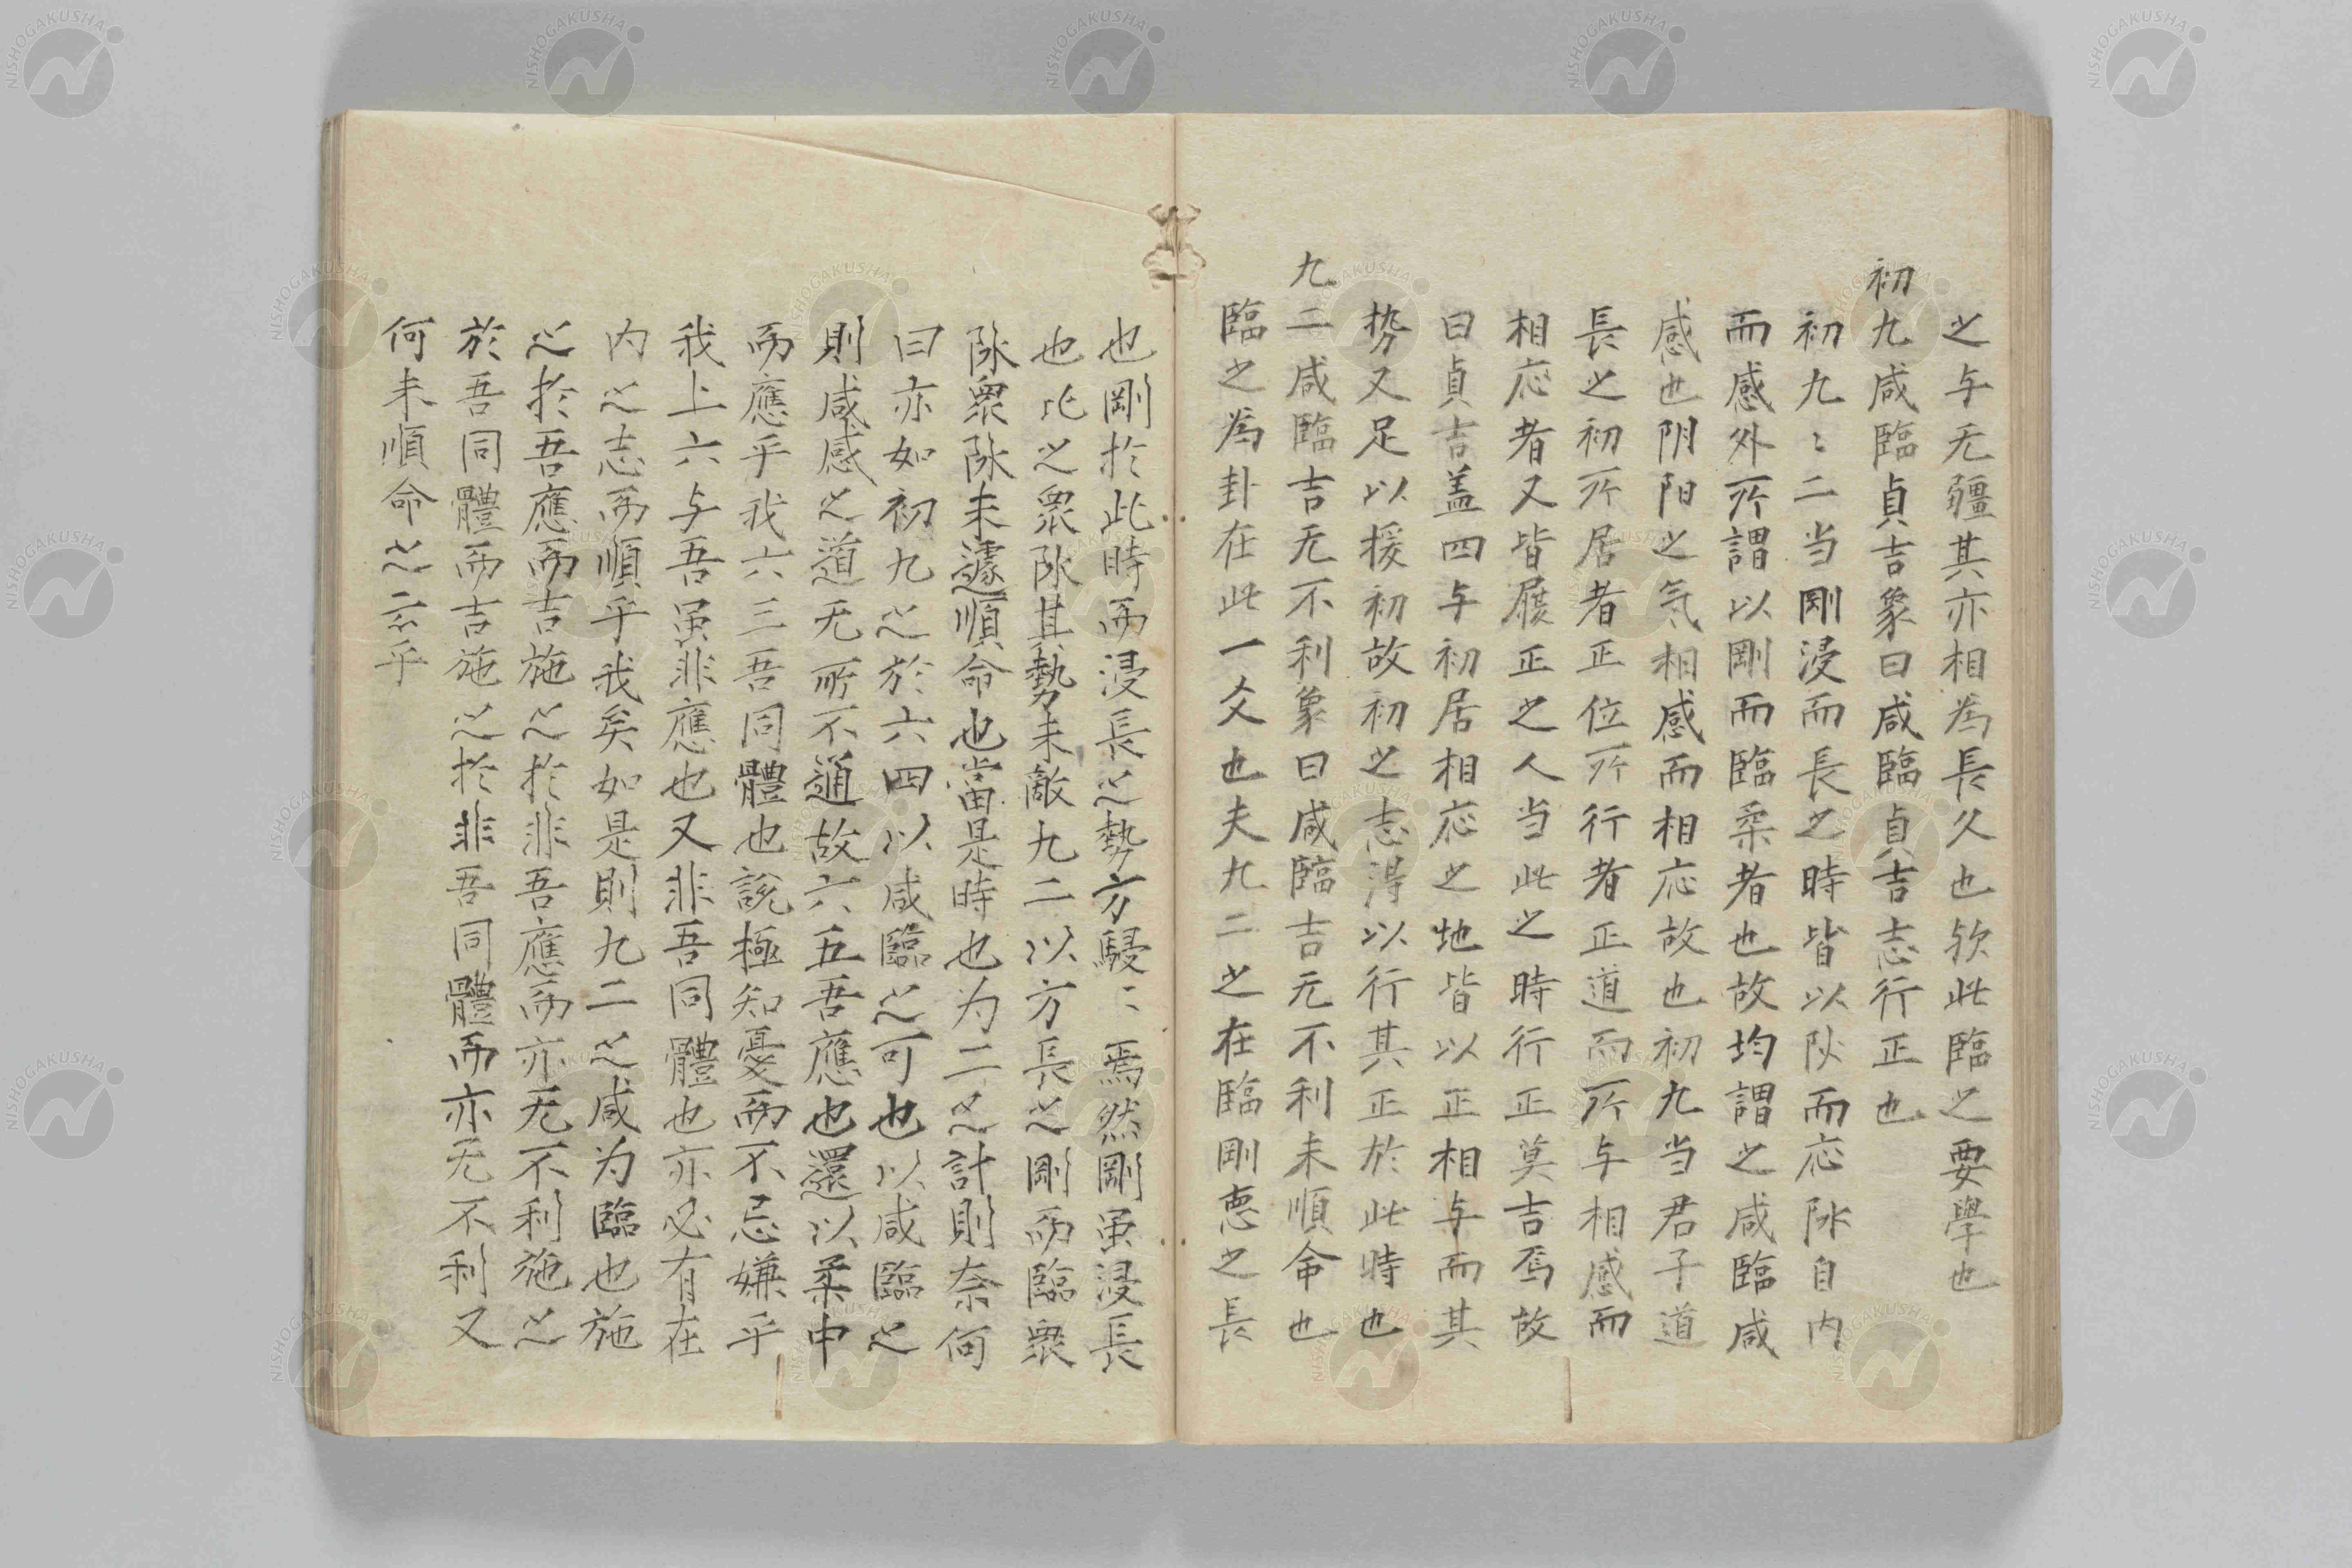 之与无疆其亦相為長久也欤此臨之要學也
初九咸臨貞吉象曰咸臨貞吉志行正也
初九〻二当剛浸而長之時皆以阦而応阥自内
而感外所謂以剛而臨柔者也故均謂之咸臨咸
感也阴阳之気相感而相応故也初九当君子道
長之初所居者正位所行者正道而所与相感而
相応者又皆履正之人当此之時行正莫吉焉故
曰貞吉盖四与初居相応之地皆以正相与而其
势又足以援初故初之志得以行其正於此時也
九二咸臨吉无不利象曰咸臨吉无不利未順命也
臨之為卦在此一爻也夫九二之在臨剛悳之長
也剛於此時而浸長之勢方駸〻焉然剛虽浸長
也比之衆阥其勢未敵九二以方長之剛而臨衆
阥衆阥未遽順命也當是時也为二之計則奈何
曰亦如初九之於六四以咸臨之可也以咸臨之
則咸感之道无所不通故六五吾應也還以柔中
而應乎我六三吾同體也說極知憂而不忌嫌乎
我上六与吾虽非應也又非吾同體也亦必有在
内之志而順乎我矣如是則九二之咸为臨也施
之於吾應而吉施之於非吾應而亦无不利施之
於吾同體而吉施之於非吾同體而亦无不利又
何未順命之云乎
NISHOGAKUSHA